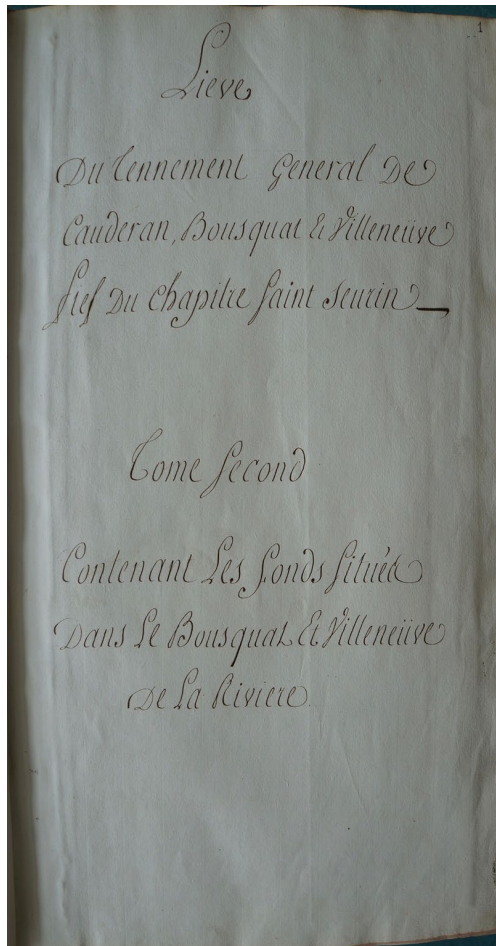 1
Lieve
Du Tennement General De
Cauderan, Bousquat & Villeneüve
fief Du Chapitre saint seurin
Tome second
Contenant Les fonds situés
Dans Le Bousquat & Villeneüve
De La Riviere